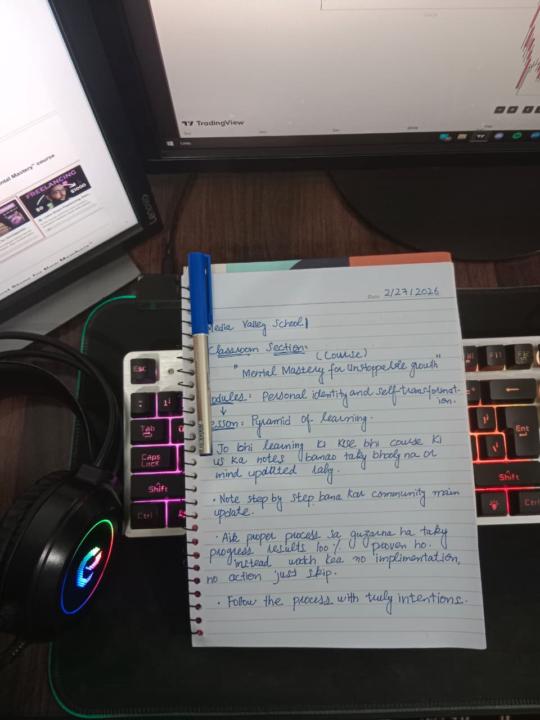 ntal Mastery" course
FREELANCING
$0
$1000
TradingView
Lenovo
Date 2/27/2026
Media Valley School.
Classroom Section:
(Course)
"Mental Mastery for Unstoppable growth"
odules: Personal identity and self-transformat-
ion.
↓
esson: Pyramid of learning.
Jo bhi learning ki kse bhi course ki
us ka notes banao taky bhooly na or
mind updated rahy.
• Note step by step bana kar community main
update.
• Aik proper process sa guzarna ha taky
progress results 100% proven ho.
instead watch kea no implimentation,
no action just skip.
• Follow the process with truly intentions.
Esc
Tab
Caps
Lock
Shift
Ctrl
Ent
Shift
Ctrl